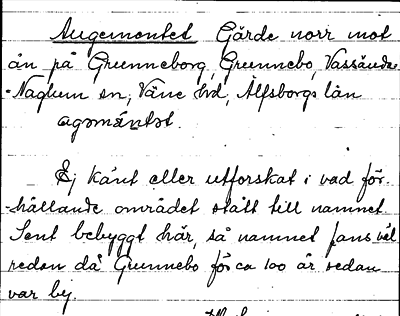 Augemontet Gärde norr mot
ån på Grunneborg, Grunnebo, Vassända-
-Naglum sn, Väne hd, Älfsborgs län
agəmäntət.
Ej känt eller utforskat i vad för-
-hållande området stått till namnet.
Sent bebyggt här, så namnet fans väl
redan då Grunnebo för ca 100 år sedan
var bej.